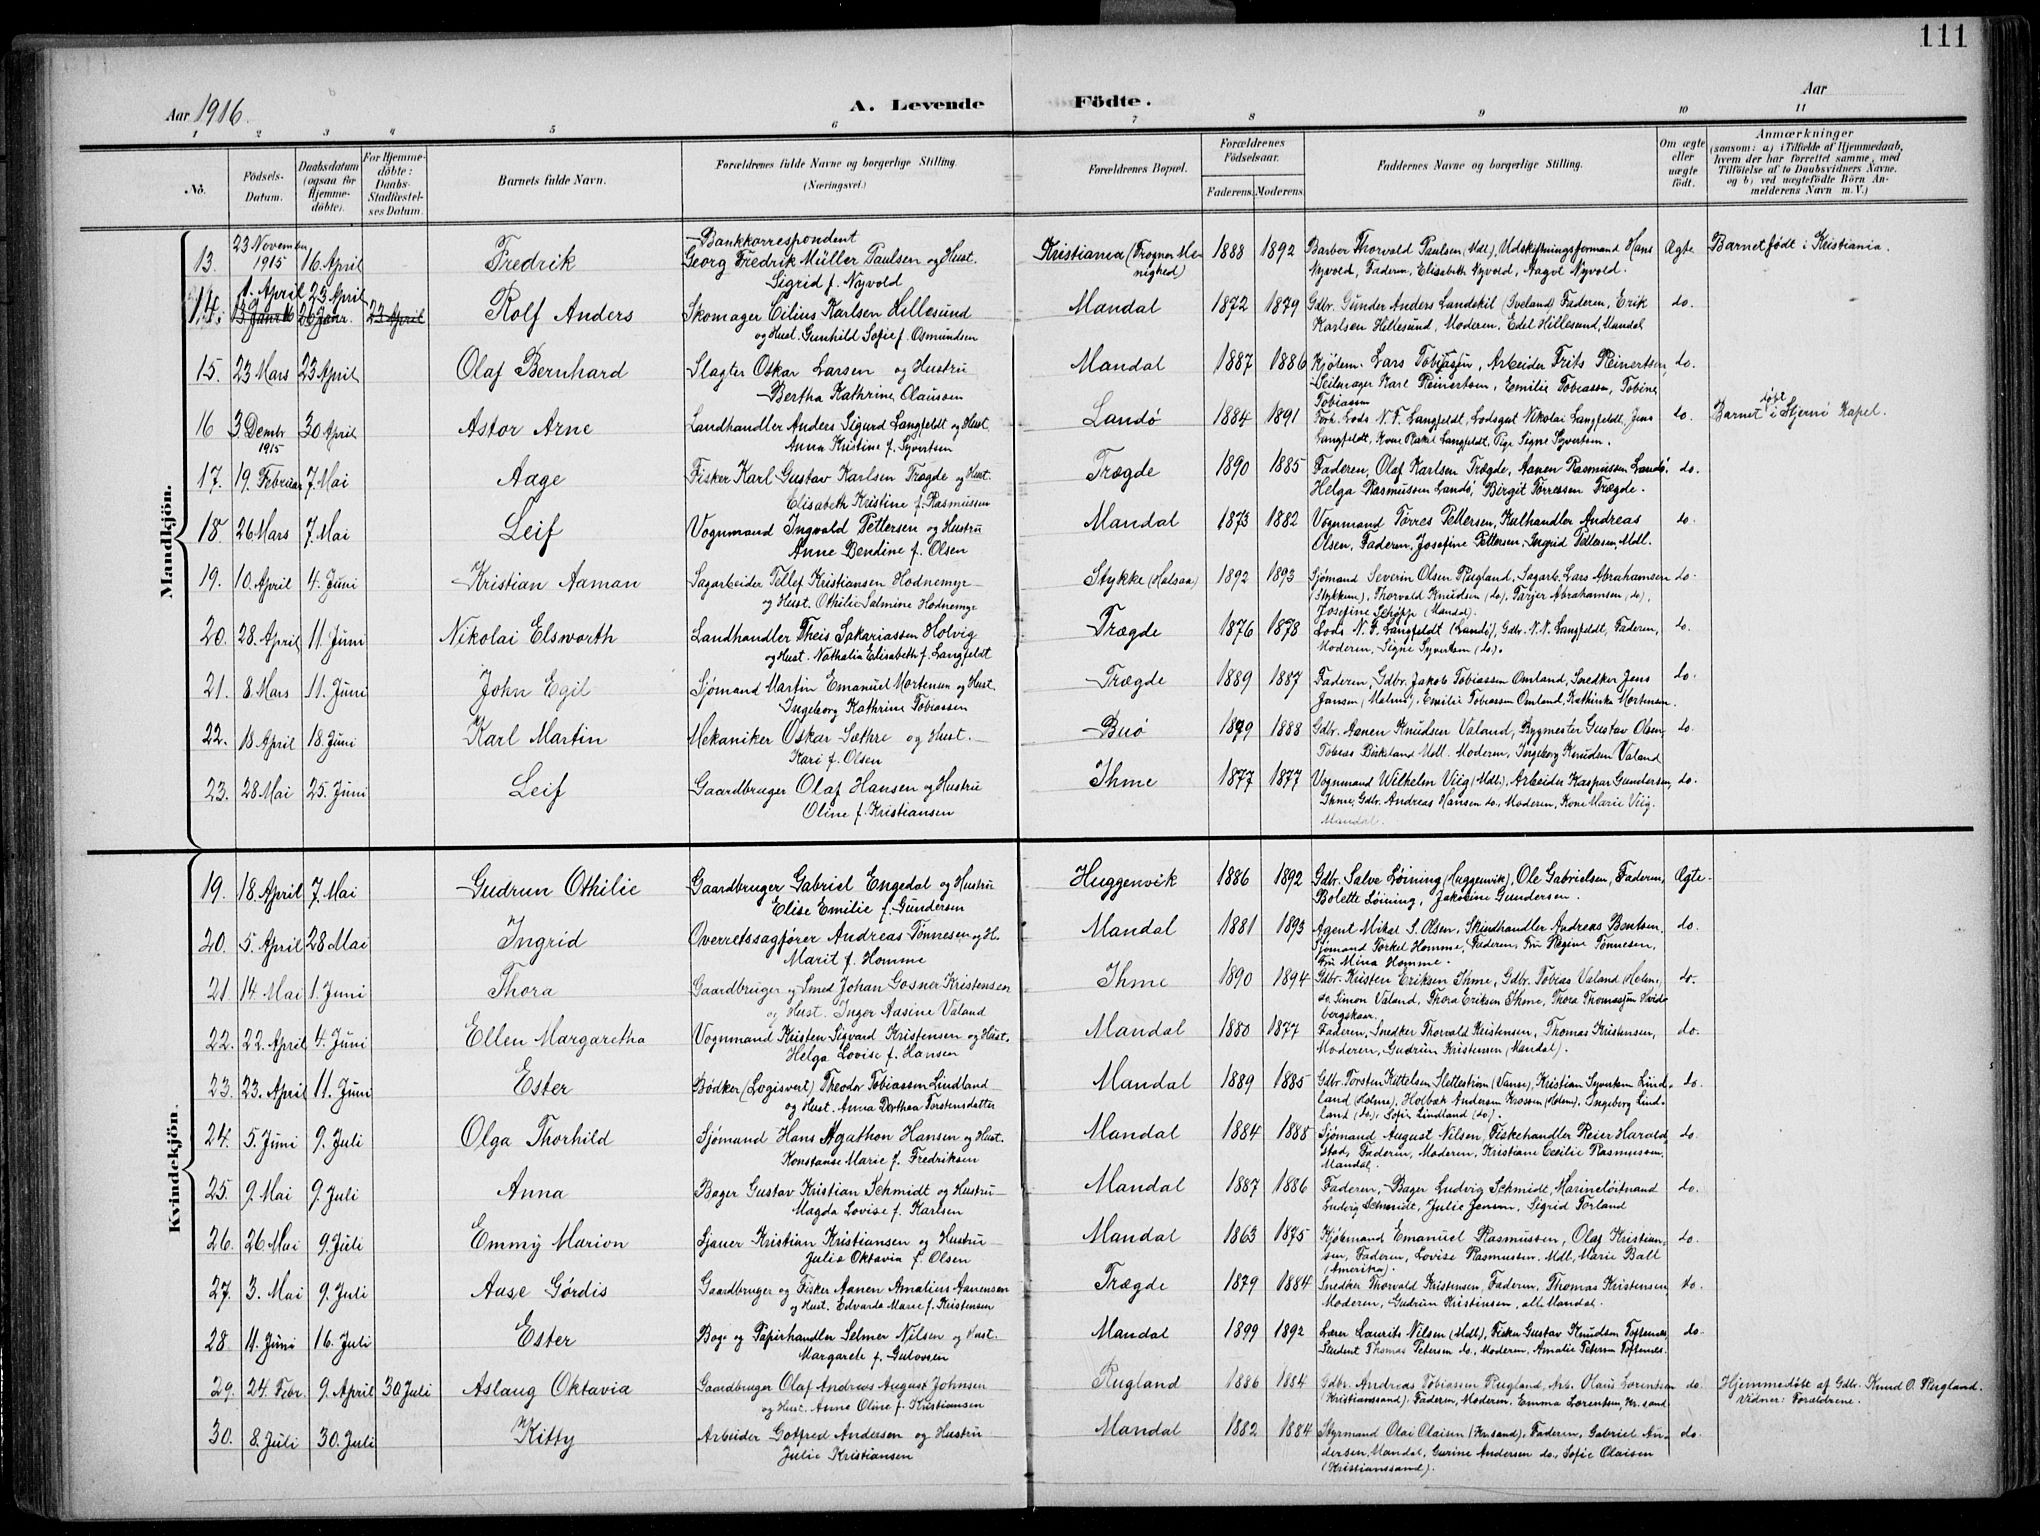 111
Aar 1916.
A. Levende Födte.
Aar
1 2 3 4 5 6 7 8 9 10 11
No.
Födsels-Datum.
Daabsdatum (ogsaa for Hjemme-döbte).
For Hjemme-döbte: Daabs-Stadfæstel-ses Datum.
Barnets fulde Navn.
Forældrenes fulde Navne og borgerlige Stilling. (Næringsvei.)
Forældrenes Bopæl.
Forældrenes Födselsaar.
Faderens. Moderens.
Faddernes Navne og borgerlige Stilling.
Om ægte eller uægte födt.
Anmærkninger (saasom: a) i Tilfælde af Hjemmedaab, hvem der har forrettet samme, med Tilföielse af to Daabsvidners Navne. og b) ved uægtefödte Börn An-melderens Navn m. V.)
Mandkjön.
13. 23 November 1915 16 April Fredrik Bankkorrespondent Georg Fredrik Müller Paulsen og Hust. Sigrid f. Nyvold Kristiania (Frogner Me-nighed) 1888 1892 Barber Thorvald Paulsen (Mdl), Udskiftningsformand Hans Nyvold, Faderen, Elisabeth Nyvold, Aagot Nyvold. Ægte Barnet født i Kristiania.
14. 1. April 23 April Rolf Anders Skomager Cilius Karlsen Hillesund og Hust. Gunhild Sofie f. Osmundsen Mandal 1872 1879 Gdbr. Gunder Anders Landskil (Iveland) Faderen, Erik Karlsen Hillesund, Moderen, Edel Hillesund, Mandal do.
15. 23 Mars 23 April Olaf Bernhard Slagter Oskar Larsen og Hustru Bertha Kathrine Olaussen Mandal 1887 1886 Kjølem. Lars Tobiasen, Arbeider Frits Reinertsen, Seilmager Karl Reinertsen, Emilie Tobiassen, Tobine Tobiassen do.
16 3 Dembr 1915 30 April Astor Arne Landhandler Anders Sigurd Langfeldt og Hust. Anna Kristine f. Syvertsen Landø 1884 1891 Forh. Lods N. F. Langfeldt, Lodsgut Nikolai Langfeldt, Jens Langfeldt, Kone Rakel Langfeldt, Pige Signe Syvertsen. do. Barnet døbt i Stjernø Kapel.
17. 19. Februar 7. Mai Aage Fisker Karl Gustav Karlsen Trægde og Hust. Elisabeth Kristine f. Rasmussen Trægde 1890 1885 Faderen, Olaf Karlsen Trægde, Aanen Rasmussen Landø, Helga Rasmussen Landø, Birgit Torressen Trægde. do.
18. 26 Mars 7. Mai Leif Vognmand Ingvald Pettersen og Hustru Anne Bendine f. Olsen Mandal 1873 1882 Vognmand Torres Pettersen, Kulhandler Andreas Olsen, Faderen, Josefine Pettersen, Ingrid Pettersen, Mdl. do.
19. 10. April 4. Juni Kristian Aaman Sagarbeider Tellef Kristiansen Hodnemyr og Hust. Othilie Salmine Hodnemyr Stykke (Halsaa) 1892 1893 Sjømand Severin Olsen Rugland, Sagarb. Lars Abrahamsen (Stykkem), Thorvald Knudsen (do), Tarjer Abrahamsen (do), Josefine Schøpp (Mandal). do.
20. 28. April 11. Juni Nikolai Elsworth Landhandler Theis Sakariassen Holvig og Hust. Nathalia Elisabeth f. Langfeldt Trægde 1876 1878 Lods N. F. Langfeldt (Landø), Gdbr. N. N. Langfeldt, Faderen, Moderen, Signe Syvertsen (do.). do.
21. 8. Mars 11. Juni John Egil Sjømand Martin Emanuel Mortensen og Hust. Ingeborg Kathrine Tobiassen Trægde 1889 1887 Faderen, Gdbr. Jakob Tobiassen Omland, Snedker Jens Jansen (Malmø), Emilie Tobiassen Omland, Kathinka Mortensen. do.
22. 18. April 18. Juni Karl Martin Mekaniker Oskar Sæthre og Hust. Kari f. Olsen Buø 1879 1888 Gdbr. Aanen Knudsen Valand, Bygmester Gustav Olsen, Tobias Birkeland Mdl. Moderen, Ingeborg Knudsen Valand do.
23. 28 Mai 25. Juni Leif Gaardbruger Olaf Hansen og Hustru Oline f. Kristiansen Ihme 1877 1877 Vognmand Wilhelm Viig (Mdl.), Arbeider Kaspar Gundersen, Ihme, Gdbr. Andreas Hansen do., Moderen, Kone Marie Viig. Mandal. do.
Kvindekjön.
19. 18 April 7. Mai Gudrun Othilie Gaardbruger Gabriel Engedal og Hustru Elise Emilie f. Gundersen Huggenvik 1886 1892 Gdbr. Salve Løining (Huggenvik), Ole Gabrielsen, Faderen, Bolette Løining, Jakobine Gundersen. Ægte
20. 5. April 28 Mai Ingrid Overretssagfører Andreas Tønnesen og H. Marit f. Homme Mandal 1881 1893 Agent Mikal S. Olsen, Skindhandler Andreas Bentsen, Sjømand Torkel Homme, Faderen, Fru Regine Tønnesen, Fru Mina Homme. do.
21 14 Mai 1. Juni Thora Gaardbruger og Smed Johan Gosner Kristensen og Hust. Inger Aasine Valand Ihme 1890 1894 Gdbr. Kristen Eriksen Ihme, Gdbr. Tobias Valand (Holme), do. Simon Valand, Thora Eriksen Ihme, Thora Thomassen Hvids bergskaar. do.
22. 22. April 4. Juni Ellen Margaretha Vognmand Kristen Sigvard Kristensen og Hust. Helga Lovise f. Hansen Mandal 1880 1877 Faderen, Snedker Thorvald Kristensen, Thomas Kristensen, Moderen, Gudrun Kristensen (Mandal). do.
23. 23. April 11. Juni Ester Bødker (Logisvert) Theodor Tobiassen Lindland og Hust. Anna Dorthea Torstensdatter Mandal 1889 1885 Gdbr. Torsten Kittelsen Slettestrøm (Vanse), Kristian Syvertsen Lind-land (Holme), Holbæk Andersen Krossen (Holm), Ingeborg Lind-land (do), Sofie Lindland (do). do.
24. 5. Juni 9. Juli Olga Thorhild Sjømand Hans Agathon Hansen og Hust. Konstanse Marie f. Fredriksen Mandal 1884 1888 Sjømand August Nilsen, Fiskehandler Reier Harald stad, Faderen, Moderen, Kristiane Cecilie Rasmussen, Mandal. do.
25. 9. Mai 9. Juli Anna Bager Gustav Kristian Schmidt og Hustru Magda Lovise f. Karlsen Mandal 1887 1886 Faderen, Bager Ludvig Schmidt, Marineløitnand Ludvig Schmidt, Julie Jensen, Sigrid Torland do.
26. 26. Mai 9. Juli Emmy Marion Sjauer Kristian Kristiansen og Hustru Julie Oktavia f. Olsen Mandal 1863 1875 Kjøbmand Emanuel Rasmussen, Olaf Kristian, sen, Faderen, Lovise Rasmussen. Mdl, Marie Ball (Amerika). do.
27. 3. Mai 9. Juli Aase Gørdis Gaardbruger og Fisker Aanen Amalius Aanensen og Hust. Edvarda Marie f. Kristensen Trægde 1879 1884 Snedker Thorvald Kristensen, Faderen, Thomas Kristensen Moderen, Gudrun Kristensen, alle Mandal. do.
28 11. Juni 16. Juli Ester Bog og Papirhandler Selmer Nilsen og Hust. Margarete f. Gulovsen Mandal 1899 1892 Lærer Laurits Nilsen (Mdl), Fisker Gustav Knudsen Toftenes, Student Thomas Petersen do., Moderen, Amalie Petersen Toftenes. do.
29. 24. Febr. 9. April 30 Juli Aslaug Oktavia Gaardbruger Olaf Andreas August Johnsen og Hust. Anne Oline f. Kristiansen Rugland 1886 1884 Gdbr. Andreas Tobiassen Rugland, Arb. Olaus Lorentsen (Kristianssand), Faderen, Moderen, Emma Lorentsen, Kr. sand do. Hjemmedøbt af Gdbr. Knud O. Rugland. Vidner: Forældrene.
30. 8. Juli 30. Juli Kitty Arbeider Gotfred Andersen og Hustru Julie Kristiansen Mandal 1882 1884 Styrmand Olai Olaisen (Kr.sand), Faderen, Gabriel An-dersen, Mandal, Gurine Andersen do., Sofie Olaisen (Kristianssand). do.